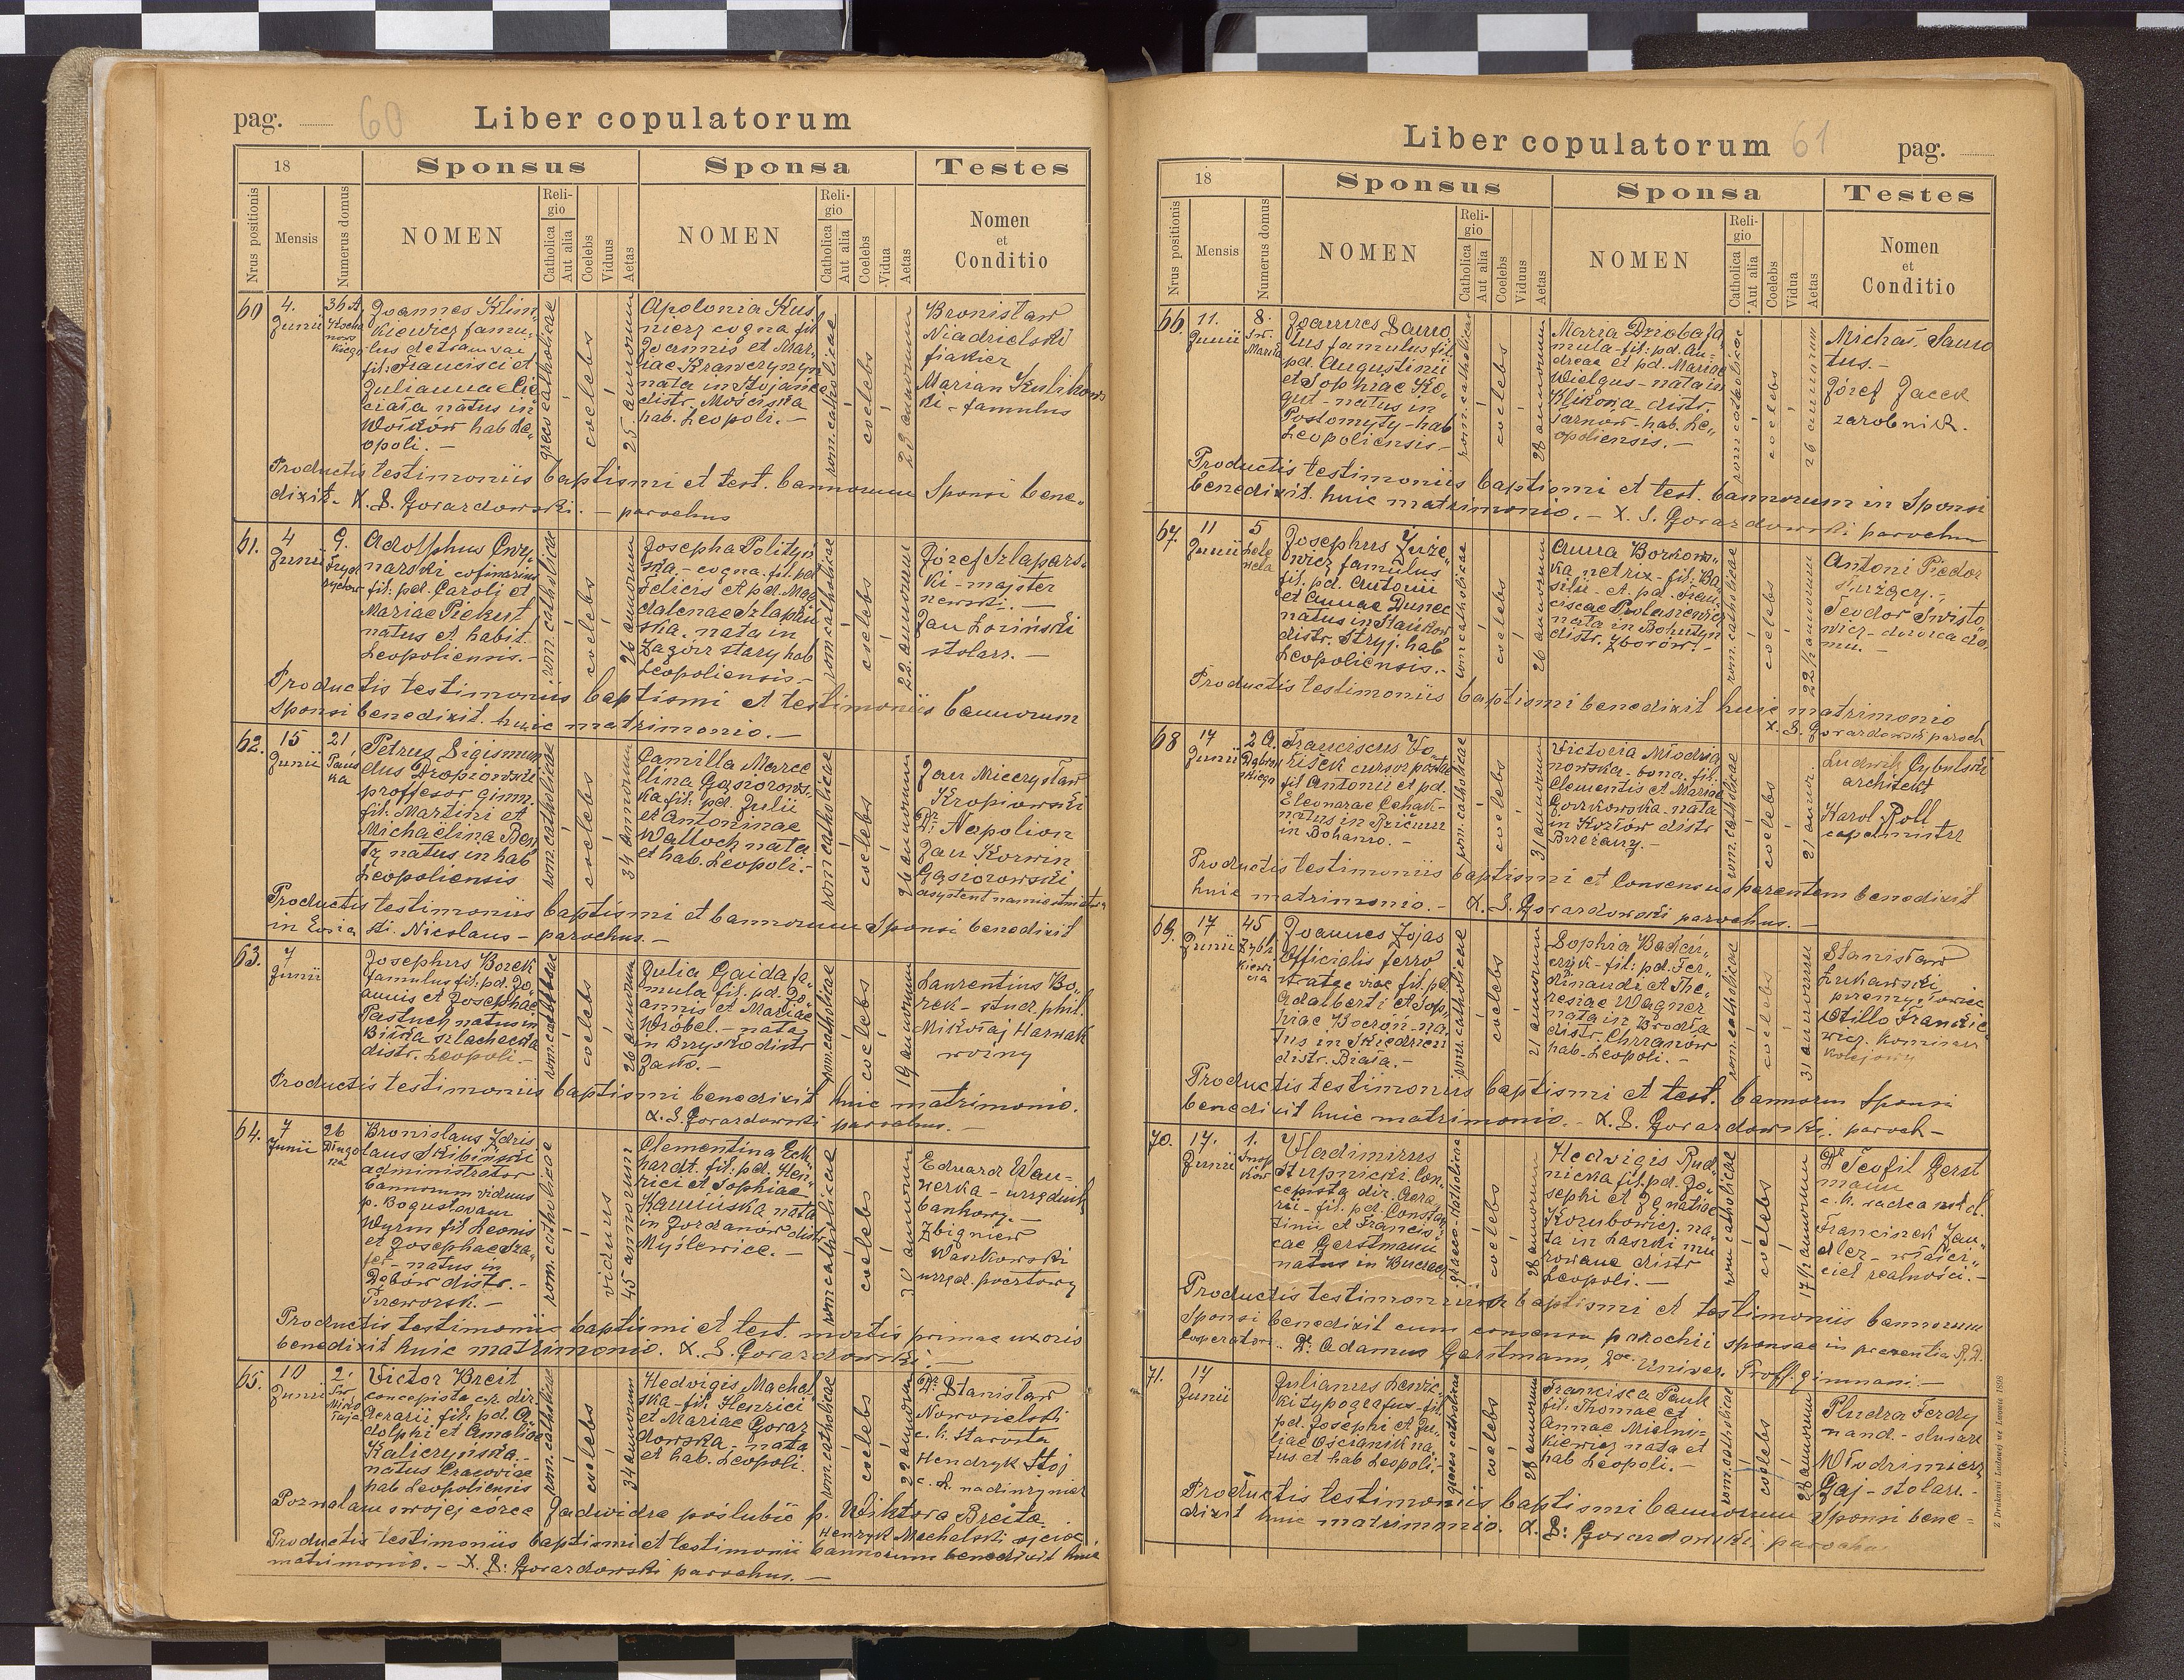 pag. 60
Liber copulatorum
18
Sponsus
Sponsa
Testes
Nrus positionis
Mensis
Numerus domus
NOMEN
Religio
Catholica
Aut alia
Coelebs
Viduus
Aetas
NOMEN
Religio
Catholica
Aut alia
Coelebs
Vidua
Aetas
Nomen
et
Conditio
60
4.
Junii
Joannes Klim„
kiewicz famu„
lus de tramvai
fil: Francisci et
Julianna Cie
natus in
hab Le„
opoli. —
greco catholicae
coelebs
25 annorum
Apolonia Kus
nierz cogna fil
Joannis et Mar„
iae Krawczyszyn
nata in Stojańce
distr. Mościska
hab. Leopoli. —
rom. catholicae
coelebs
Bronisław
Niadzielski
fiakier
Marian Kulikows
ki — famulus
Productis testimoniis baptismi et test. bannorum Sponsi bene„
dixit. X. S. Gorazdowski. — parochus
61.
4
Junii
9.
Adolphus Cwy
narski
fil: pd. Caroli et
Mariae Piekut
natus et habit.
Leopoliensis. —
rom. catholicae
coelebs
26 annorum
Josepha Polityń
ska — cogna. fil. pd
Felicis et pd. Mag
dalenae Szlapar
ska. nata in
Zagórz stary hab
Leopoliensis. —
rom catholicae
coelebs
22 annorum
Józef Szlapars.
ki — majster
Jan Łoziński
stolarz. —
Productis testimoniis baptismi et testimoniis bannorum
Sponsi benedixit huic matrimonio. —
62.
15
Junii
21
Pańs
ka
Petrus Sigismun
dus Kropiowski
proffesor gimn.
fil. Martini et
Michaëlina Ben
tz natus in hab
Leopoliensis
rom. catholicae
coelebs
34 annorum
Camilla Marce
llina Gąsiorows
ka fil: pd. Julii
et Antoninae
Walloch nata
et hab. Leopoli. —
rom catholicae
coelebs
26 annorum
Jan Mieczysław
Kropiowski
Dr. Napolion
Jan Korwin
Gąsiorowski
asystent namiestnictwa
Productis testimoniis baptismi et bannorum Sponsi benedixit
in St. Nicolaus — parochus. —
63.
7
Junii
Josephus Borek
famulus fil. pd. Jo„
annis et Josephae
Pastuch natus in
Biłka szlachecka
distr. Leopoli. —
rom. catholicae
coelebs
26 annorum
Julia Gaida fa„
mula fil. pd. Jo„
annis et Mariae
Wrobel. — nata
in distr
rom. catholicae
coelebs
19 annorum
Laurentius Bo„
rek — stud. phil.
Mikołaj Harnak
woźny
Productis testimoniis baptismi benedixit huic matrimonio.
X. S. Gorazdowski parochus. —
64.
7
Junii
26
Długo
sza
Bronislaus Zdzis
laus Skibiński
administrator
bannorum viduus
p. Bogusławam
Wyrm fil Leonis
et Josephae
natus in
Dębów distr. —
Przeworsk. —
rom. catholicae
viduus
45 annorum
Clementina Eck
hardt. fil: pd. Hen„
rici et Sophiae
Kamińska nata
in Jordanów distr
Myślenice. —
rom catholicae
coelebs
30 annorum
Eduard Waw„
nerka — urzędnik
bankowy. —
Zbigniew
Waskowski
urzęd. pocztowy
Productis testimoniis baptismi et test. mortis primae uxoris
benedixit huic matrimonio. X. S. Gorazdowski. —
65.
10
Junii
2.
Św.
Miko
łaja
Victor Breit
concepista c.k. dir.
aerarii fil: pd. A„
dolphi et Amaliae
Kaliczyńska. —
natus Cracoviae
hab Leopoliensis
rom. catholicae
coelebs
34 annorum
Hedvigis Machal
ska — fil. Henrici
et Mariae Goraz
dowska — nata
et hab. Leopoli.
rom. catholicae
coelebs
22 annorum
Dr. Stanisław
Nowosielski
c. k. starosta
Hendryk Stoj
c. k. nadinżynier
Pozwalam swojej córce Jadwidze poślubić p. Wiktora Breita.
Henryk Machalski ojciec
Productis testimoniis baptismi et testimonii bannorum benedixit huic
matrimonio. — X. S: Gorazdowski parochus. —
Liber copulatorum 61
pag.
18
Sponsus
Sponsa
Testes
Nrus positionis
Mensis
Numerus domus
NOMEN
Religio
Catholica
Aut alia
Coelebs
Viduus
Aetas
NOMEN
Religio
Catholica
Aut alia
Coelebs
Vidua
Aetas
Nomen
et
Conditio
66
11.
Junii
8.
Św.
Marcina
Joannes Sawo
tus famulus fil.
pd. Augustinii
et Sophiae Ko„
gut — natus in
Postomyty — hab
Leopoliensis —
rom. catholicae
coelebs
28 annorum
Maria fa
mula — fil: pd. An„
dreae et pd. Mariae
Wielgus — nata in
Klikowa distr.
Tarnów. hab. Le„
opoliensis. —
rom catholicae
coelebs
26 annorum
Michał Sawo
tus. —
Józef Jacek
zarobnik.
Productis testimoniis baptismi et test. bannorum in Sponsi
benedixit. huic matrimonio. — X. S. Gorazdowski parochus
67.
11
Junii
5
Lele
wela
Josephus
wicz famulus
fil. pd. Antonii
et Annae Dunec
natus in Stańków
distr. Stryj. hab
Leopoliensis. —
rom catholicae
coelebs
26 annorum
Anna Borkows„
ka netrix — fil. Ba„
silii — et. pd. Fran„
ciscae
nata in
distr. Zborów. —
rom. catholicae
coelebs
22 1/2 annorum
Antoni Fiedor
służący.
Teodor Swisto„
wicz — dozorca do„
mu. —
Productis testimoniis baptismi benedixit huic matrimonio
X. S. Gorazdowski paroch
68
17
Junii
2 a.
Dąbrow
skiego
Franciscus Vo„
rišek cursor postae
fil Antonii et pd.
Eleonorae Cehak —
natus in
in Bohamo. —
rom. catholicae
coelebs
31 annorum
Victoria Młodzia
nowska — bona. fil.
Clementis et Mariae
Gorzkowska. nata
in Kozłów distr
Brzeżany. —
rom. catholicae
coelebs
21 annor.
Ludwik Cybulski
architekt
Karol Roll
capelmistrz
Productis testimoniis baptismi et Consensus parentem benedixit
huic matrimonio. — X. S. Gorazdowski parochus. —
69.
17
Junii
45
Zybli
kiewi
cza
Joannes Zojas
Officialis ferro
viae fil. pd.
Adalberti et Sop„
hiae na„
tus in
distr. Biała. —
rom. catholicae
coelebs
21 annorum
Sophia
fil: pd. Fer„
dinandi et The„
resiae Wagner
nata in Brodła
distr. Chrzanów
hab. Leopoli. —
rom. catholicae
coelebs
31 annorum
Stanisław
Łukawski
przemysłowiec
Otillo Frankie
wicz. komisarz
kolejowy
Productis testimoniis baptismi et test. bannorum Sponsi
benedixit huic matrimonio. — X. S. Gorazdowski. paroch —
70.
17.
Junii
1.
Snop
ków
Vladimirus
Stupnicki Con„
cepista dir. aera„
rii — fil. pd. Constan
tinii et Francis„
cae Gerstmann
natus in Buczacz
graeco-katholicae
coelebs
28 annorum
Hedvigis Rud„
nicka fil. pd. Jo„
sephi et Ignatiae
Kozubowicz. na„
ta in Laszki mu
rowane distr
Leopoli. —
rom catholicae
coelebs
17 1/2 annorum
Dr. Teofil Gerst
mann
c. k. radca
Franciszek Jan„
właści„
ciel realności. —
Productis testimoniis baptismi et testimoniis bannorum
Sponsi benedixit cum consensu parochii sponsae in prezentia R. D.
Cooperator. Dr. Adamus Gerstmann, Univer. Proff. gimnani. —
71.
17
Junii
Julianus Lewic„
ki typografus — fil.
pd. Josephi et Ju„
liae Ościanik na„
tus et hab Leopoli. —
graeco catholicae
coelebs
28 annorum
Francisca Pauk
fil. Thomae et
Annae Mielni„
kiewicz nata et
hab Leopoli. —
rom. catholicae
coelebs
28 annorum
Pludra Ferdy
nand. — slusarz
Włodzimierz
Gaj — stolarz. —
Productis testimoniis baptismi bannorum Sponsi bene =
dixit huic matrimonio. X. S: Gorazdowski parochus
Z Drukarni Ludowej we Lwowie 1898